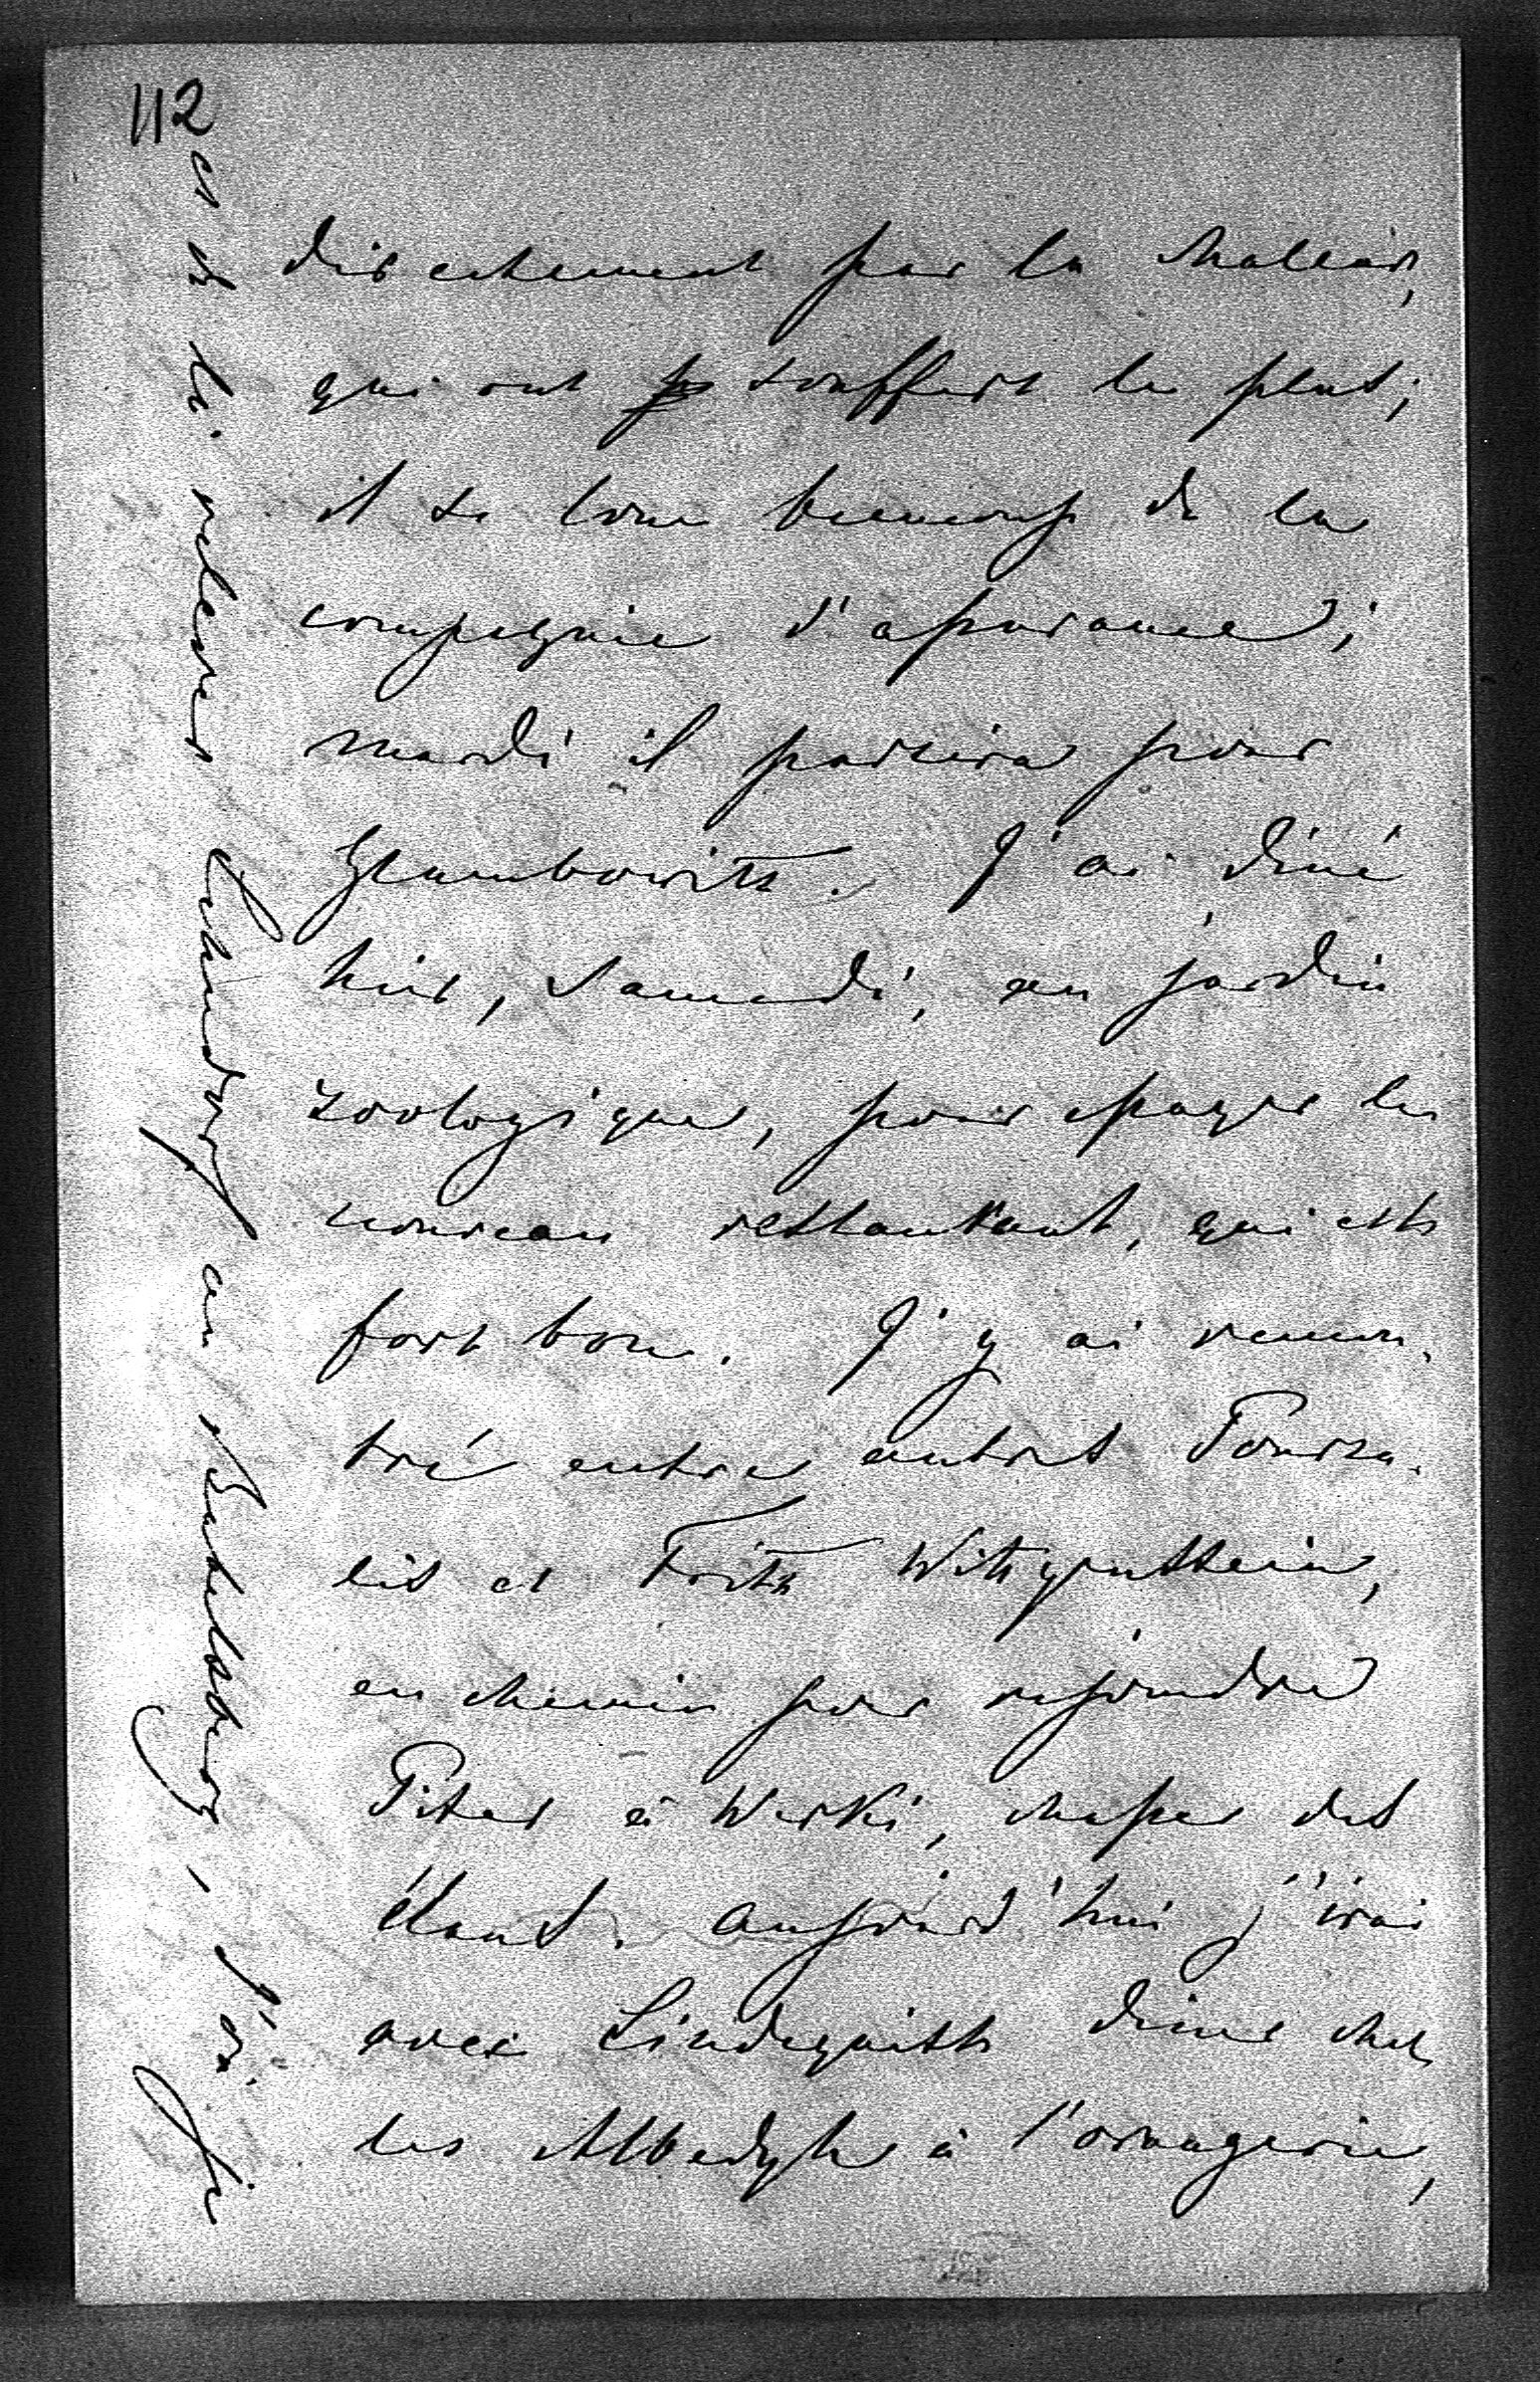 112
directement par la chaleur,
qui ont souffert le plus;
il se loue beaucoup de la
compagnie d'assurance;
mardi il partira pour
Glumbowitz. J'ai diné
hier, Samedi, au jardin
zoologique, pour essayer le
nouveau restaurant, qui est
fort bon. J'y ai rencon-
tré entre autres Pourta-
lès et Fritz Wittgenstein,
en chemin pour rejoindre
Peter à Werki, chasser des
élans. Aujourd'hui j'irai
avec Lindequist diner chez
les Albedyll à l'orangerie,
et de là relever Lehndorf au Babelsberg, J'ai